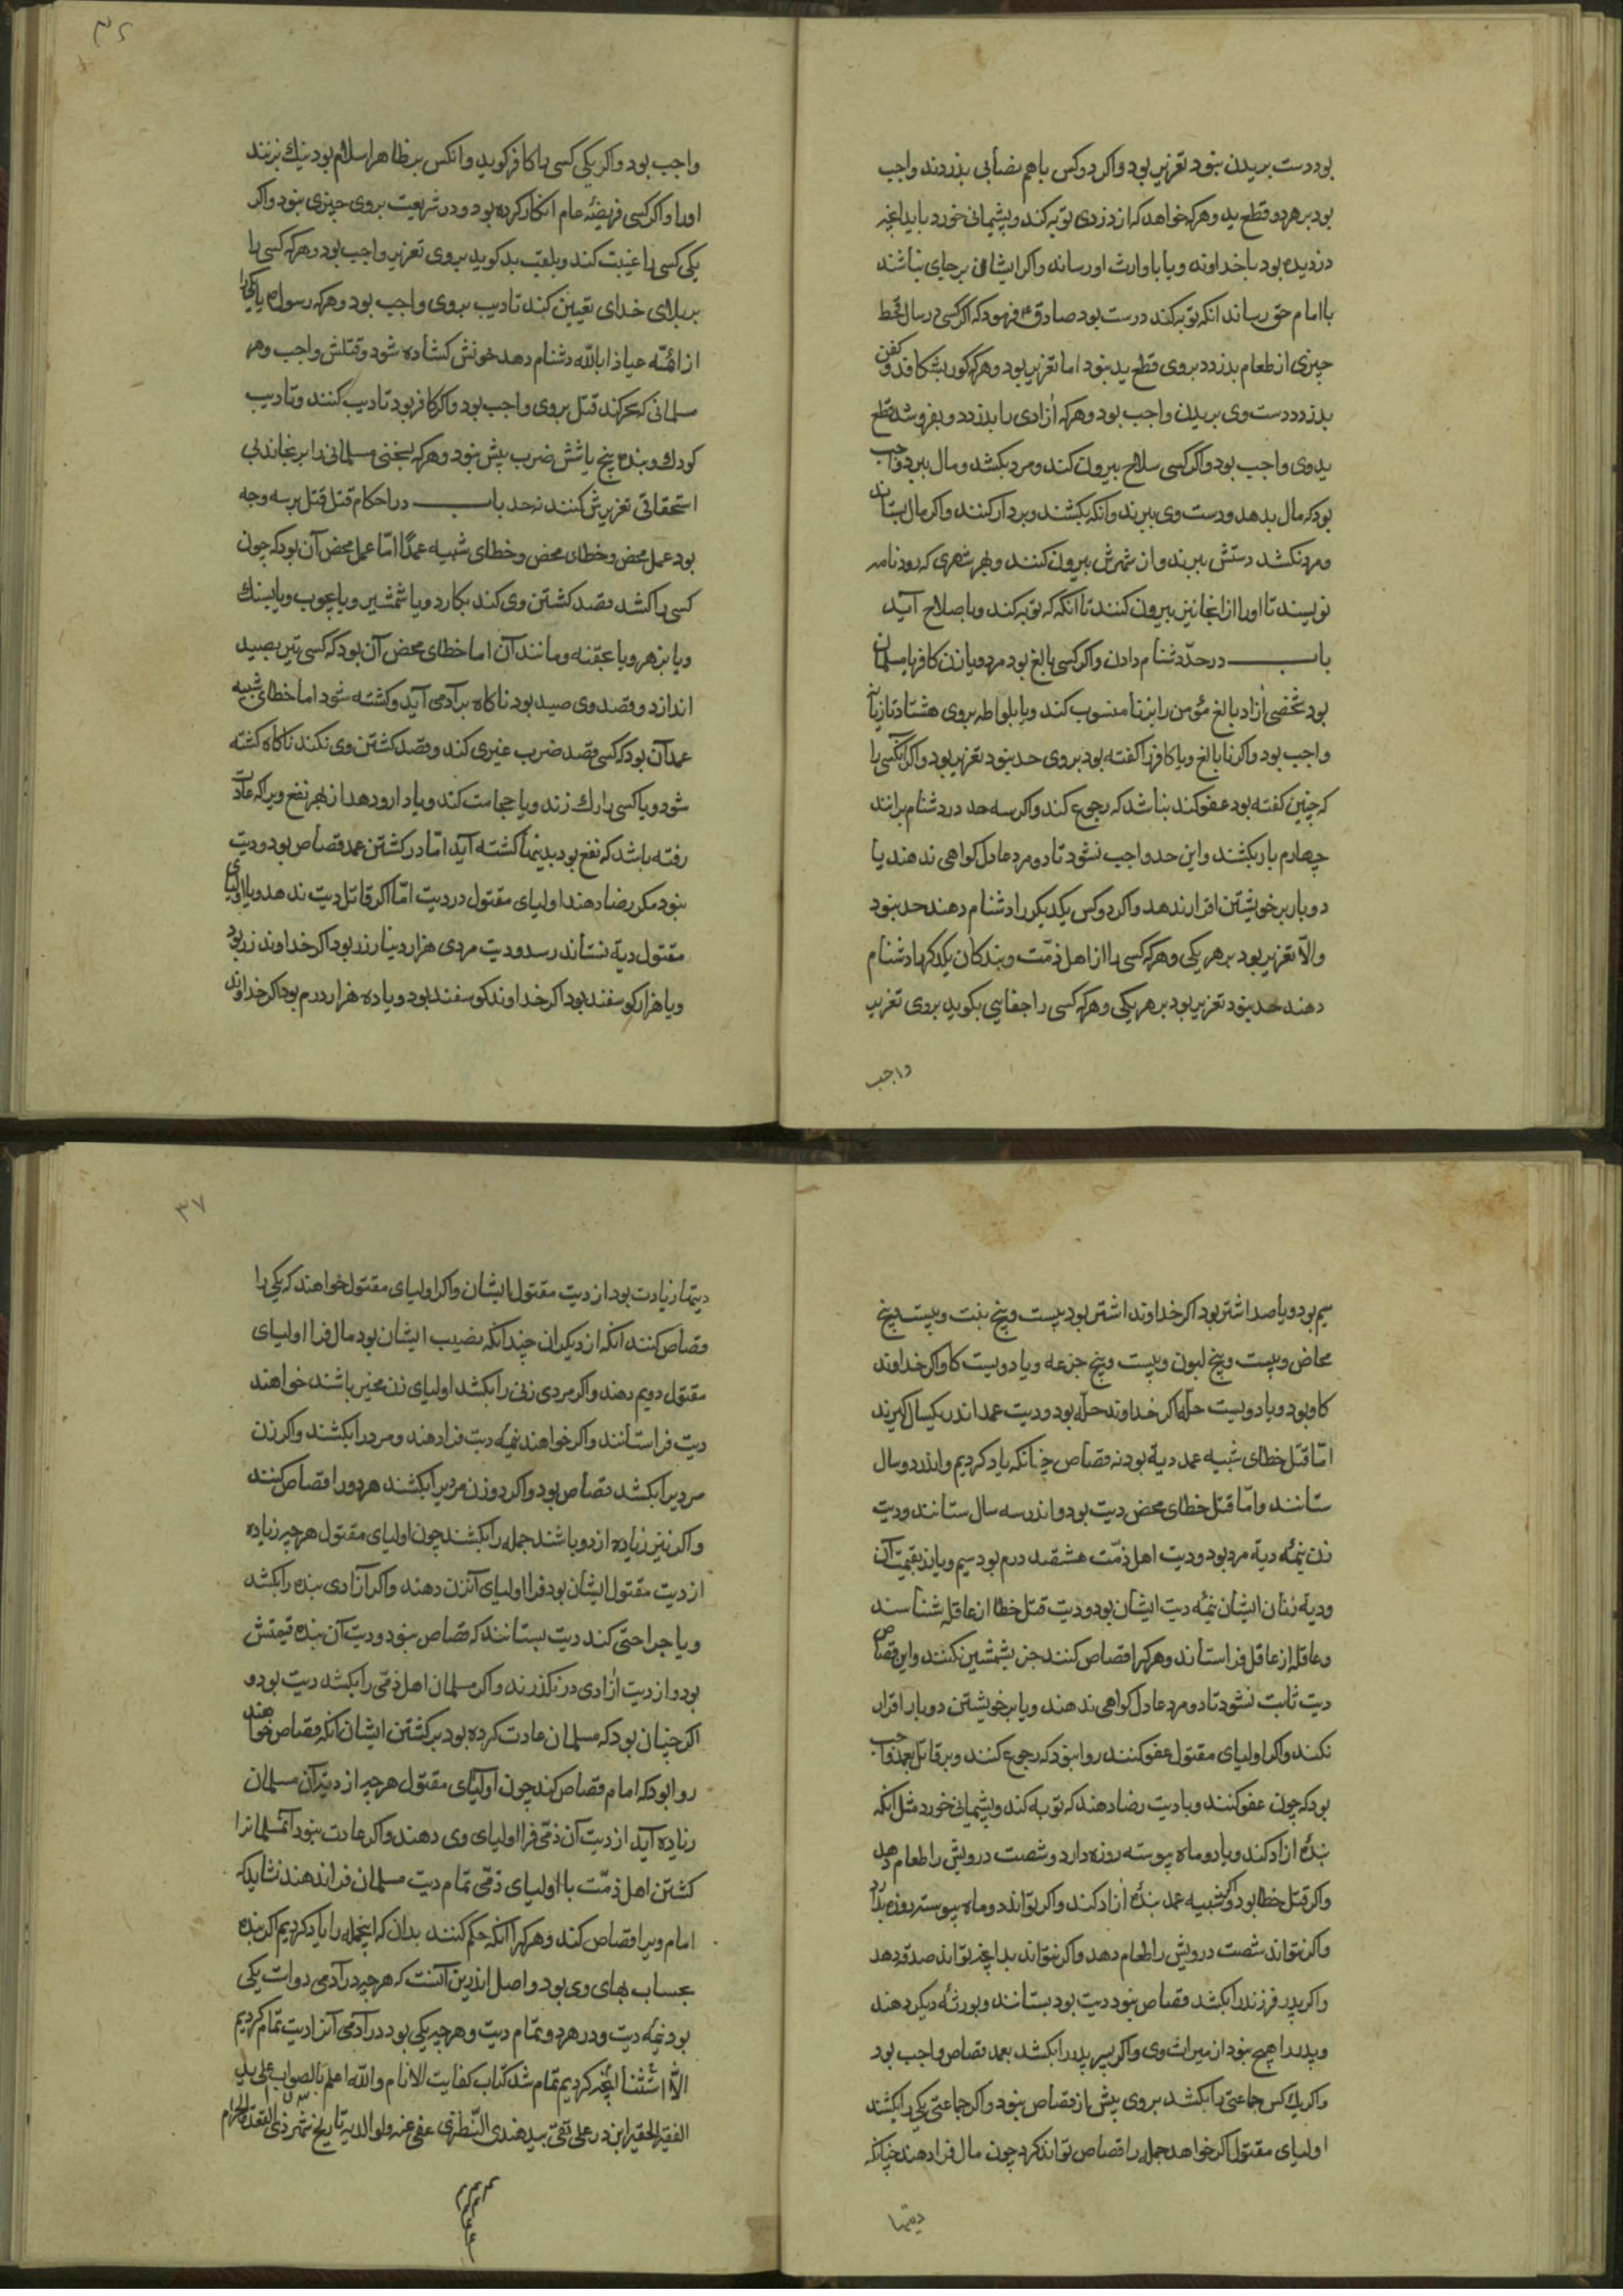 بود دست بریدن نبود تعزیر بود واکر دو کس باهم نصابی بدزدند واجب
بود بر هر دو قطع ید وهرکه خواهد که از دزدی توبه کند و پشیمانی خورد باید انچه
دزدیده بود با خداوند ویا با وارث او رساند واکر ایشان بر جای نباشند
با امام حق رساند انکه توبه کند درست بود صادق ع فرمود که اکر کسی در سال قحط
چیزی از طعام بدزدد بروی قطع ید نبود اما تعزیر بود وهرکه کور بشکافد و کفن
بدزدد دست وی بریدن واجب بود وهرکه ازادی را بدزدد و بفروشد قطع
ید وی واجب بود واکر کسی سلاح بیرون کند ومرد بکشد ومال ببرد واجب
بود که مال بدهد ودست وی ببرند وانکه بکشند وبردار کنند واکر مال بستاند
ومرد نکشد دستش ببرند واز شهرش بیرون کنند وبهر شهری که رود نامه
نویسند تا اورا از انجا نیز بیرون کنند تا انکه که توبه کند وبا صلاح آید
باب در حدّ دشنام دادن واکر کسی بالغ بود مرد ویا زن کافر یا مسلمان
بود شخصی آزاد بالغ مؤمن را بزنا منسوب کند ویا بلواطه بروی هشتاد تازیانه
واجب بود واکر نا بالغ ویا کافر را کفته بود بروی حد نبود تعزیر بود واکر آنکسی را
که چنین کفته بود عفو کند نباشد که رجوع کند واکر سه حد در دشنام برانند
چهارم بار بکشند واین حد واجب نشود تا دو مرد عادل کواهی ندهند یا
دو بار بر خویشتن اقرار ندهد واکر دو کس یکدیکر را دشنام دهند حد نبود
والّا تعزیر بود بر هر یکی وهرکه کسی را از اهل ذمّت و بندکان یکدکر را دشنام
دهند حد نبود تعزیر بود بر هر یکی وهرکه کسی را جفایی بکوید بروی تعزیر
واجب
واجب بود واکر یکی کسی را کافر کوید وانکس بر ظاهر اسلام بود نیك بزنند
اورا واکر کسی فریضهٔ عام انکار کرده بود ودر شریعت بروی چیزی نبود واکر
یکی کسی را غیبت کند وبلقب بد کوید بروی تعزیر واجب بود وهرکه کسی را
ببلای خدای تعیین کند تادیب بروی واجب بود وهرکه رسول ص یا یکی را
از ائمّه عیاذا بالله دشنام دهد خونش کشاده شود وقتلش واجب وهر
مسلمانی که سحر کند قتل بروی واجب بود واکر کافر بود تادیب کنند وتادیب
کودك وبنده پنج یا شش ضرب بیش نبود وهرکه بسخنی مسلمانی را برنجاند بی
استحقاقی تعزیرش کنند نه حد باب در احکام قتل قتل بر سه وجه
بود عمل محض وخطای محض وخطای شبیه عمدًا امّا عمل محض آن بود که چون
کسی را کشد قصد کشتن وی کند بکارد ویا شمشیر ویا بچوب ویا بسنك
ویا بزهر ویا عقبه ومانند آن اما خطای محض آن بود که کسی تیر بصید
اندازد وقصد وی صید بود ناکاه بر آدمی آید وکشته شود اما خطای شبیه
عمد آن بود که کسی قصد ضرب غیری کند وقصد کشتن وی نکند ناکاه کشته
شود ویا کسی را رك زند ویا حجامت کند ویا دارو دهد از بهر نفع ویرا که عادت
رفته باشد که نفع بود بدینها کشته آید امّا در کشتن عمد قصاص بود ودیت
نبود مکر رضا دهند اولیای مقتول در دیت امّا اکر قاتل دیت ندهد ویا اولیای
مقتول دیهٔ نستاند رسد ودیت مردی هزار دینار زر بود اکر خداوند زر بود
ویا هزار کوسفند بود اکر خداوند کوسفند بود ویا ده هزار درم بود اکر خداوند
سیم بود ویا صد اشتر بود اکر خداوند اشتر بود بیست وپنج بنت وبیست وپنج
مخاض وبیست وپنج لبون وبیست وپنج جزعه ویا دویست کاو اکر خداوند
کاو بود ویا دویست حلّه اکر خداوند حلّه بود ودیت عمد اندر یکسال کیرند
امّا قتل خطای شبیه عمد دیهٔ بود نه قصاص چنانکه یاد کردیم واندر دو سال
ستانند وامّا قتل خطای محض دیت بود واندر سه سال ستانند ودیت
زن نیمهٔ دیهٔ مرد بود ودیت اهل ذمّت هشتصد درم بود سیم ویا زر بقیمت آن
ودیهٔ زنان ایشان نیمهٔ دیت ایشان بود ودیت قتل خطا از عاقله شناسند
وعاقله از عاقل فراستاند وهرکرا قصاص کنند جز بشمشیر نکنند واین قصاص
دیت ثابت نشود تا دو مرد عادل کواهی ندهند ویا بر خویشتن دو بار اقرار
نکند واکر اولیای مقتول عفو کنند روا نبود که رجوع کنند وبر قاتل بعمد واجب
بود که چون عفو کنند ویا دیت رضا دهند که توبه کند وپشیمانی خورد مثل انکه
بندهٔ ازاد کند ویا دو ماه پیوسته روزه دارد وشصت درویش را طعام دهد
واکر قتل خطا بود واکر شبیه عمد بندهٔ ازاد کند واکر نتواند دو ماه پیوسته روزه بدارد
واکر نتواند شصت درویش را طعام دهد واکر نتواند بدانچه تواند صدقه دهد
واکر پدر فرزند را بکشد قصاص نبود دیت بود بستانند وبورثهٔ دیکر دهند
وپدر را هیچ نبود از میراث وی واکر پسر پدر را بکشد بعمد قصاص واجب بود
واکر یك کس جماعتی را بکشد بروی بیش از قصاص نبود واکر جماعتی یکی را بکشند
اولیای مقتول اکر خواهد جمله را قصاص تواند کرد چون مال فرا دهند چنانکه
دیتها
دیتها زیادت بود از دیت مقتول ایشان واکر اولیای مقتول خواهند که یکی را
قصاص کنند انکه از دیکران چندانکه نصیب ایشان بود مال فرا اولیای
مقتول دویم دهند واکر مردی زنی را بکشد اولیای زن مخیر باشند خواهند
دیت فراستانند واکر خواهند نیمهٔ دیت فرا دهند ومرد را بکشند واکر زن
مردیرا بکشد قصاص بود واکر دو زن مردیرا بکشند هر دورا قصاص کنند
واکر نیز زیاده از دو باشند جمله را بکشند چون اولیای مقتول هر چه زیاده
از دیت مقتول ایشان بود فرا اولیای آن زن دهند واکر آزادی بنده را بکشد
ویا جراحتی کند دیت بستانند که قصاص نبود ودیت آن بنده قیمتش
بود واز دیت ازادی در نکذرند واکر مسلمان اهل ذمّی را بکشد دیت بود و
اکر چنان بود که مسلمان عادت کرده بود بر کشتن ایشان انکه قصاص خواهند
روا بود که امام قصاص کند چون اولیای مقتول هر چه از دیت آن مسلمان
زیاده آید از دیت آن ذمّی فرا اولیای وی دهند واکر عادت نبود آنمسلمانرا
کشتن اهل ذمّت با اولیای ذمّی تمام دیت مسلمان فرا ندهند نشاید که
امام ویرا قصاص کند وهرکرا انکه حکم کنند بدان که اینجمله را یاد کردیم اکر بنده
بحساب بهای وی بود واصل اندرین آنست که هر چه در آدمی دو است یکی
بود نیمه دیت ودر هر دو تمام دیت وهر چه یکی بود در آدمی آنرا دیت تمام کردیم
الّا اشثنا انچه کردیم تمام شد کتاب کفایت الانام والله اعلم بالصواب علی ید
الفقیر الحقیر ابن در علی تقی سید هندی النطنزی عفی عنه ولوالدیه تاریخ شهر ذی القعدة الحرام
۳۷